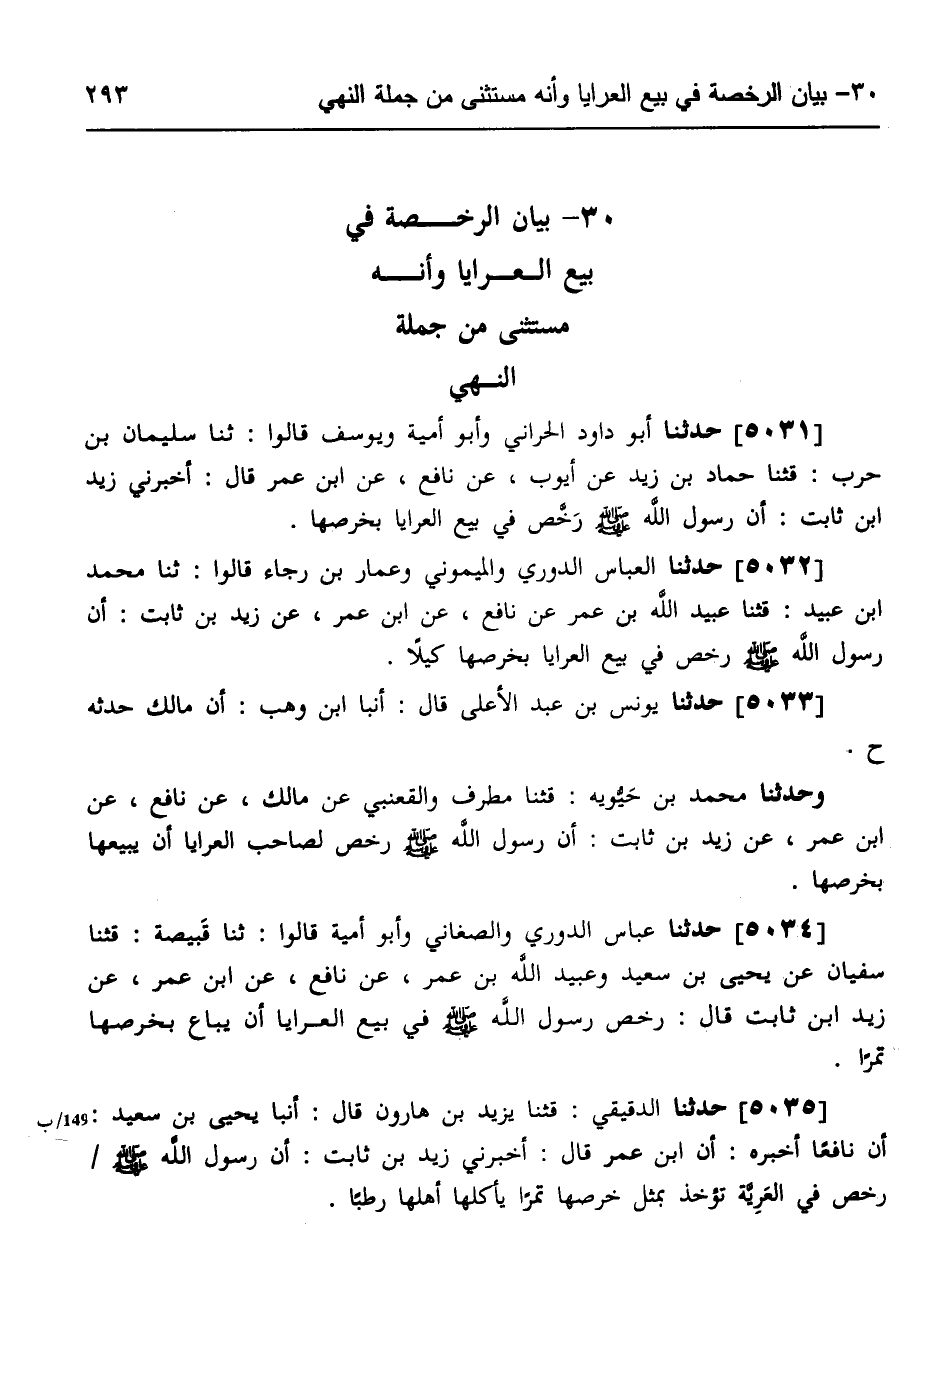 ٣٠- بيان الرخصة في بيع العرايا وأنه مستثنى من جملة النهي ٢٩٣
٣٠- بيان الرخـــصة في
بيع الـعـــرايا وأنــــه
مستثنى من جملة
النـــهي
[٥٠٣١] حدثنا أبو داود الحراني وأبو أمية ويوسف قالوا : ثنا سليمان بن
حرب : قثنا حماد بن زيد عن أيوب ، عن نافع ، عن ابن عمر قال : أخبرني زيد
ابن ثابت : أن رسول اللَّه ﷺ رَخَّص في بيع العرايا بخرصها .
[٥٠٣٢] حدثنا العباس الدوري والميموني وعمار بن رجاء قالوا : ثنا محمد
ابن عبيد : قثنا عبيد اللَّه بن عمر عن نافع ، عن ابن عمر ، عن زيد بن ثابت : أن
رسول اللَّه ﷺ رخص في بيع العرايا بخرصها كيلًا .
[٥٠٣٣] حدثنا يونس بن عبد الأعلى قال : أنبا ابن وهب : أن مالك حدثه
ح .
وحدثنا محمد بن حَيُّويه : قثنا مطرف والقعنبي عن مالك ، عن نافع ، عن
ابن عمر ، عن زيد بن ثابت : أن رسول اللَّه ﷺ رخص لصاحب العرايا أن يبيعها
بخرصها .
[٥٠٣٤] حدثنا عباس الدوري والصغاني وأبو أمية قالوا : ثنا قَبيصة : قثنا
سفيان عن يحيى بن سعيد وعبيد اللَّه بن عمر ، عن نافع ، عن ابن عمر ، عن
زيد ابن ثابت قال : رخص رسول اللَّه ﷺ في بيع العـرايا أن يباع بخرصها
تمرًا .
[٥٠٣٥] حدثنا الدقيقي : قثنا يزيد بن هارون قال : أنبا يحيى بن سعيد : 149/ب
أن نافعًا أخبره : أن ابن عمر قال : أخبرني زيد بن ثابت : أن رسول اللَّه ﷺ /
رخص في العَرِيَّة تؤخذ بمثل خرصها تمرًا يأكلها أهلها رطبًا .